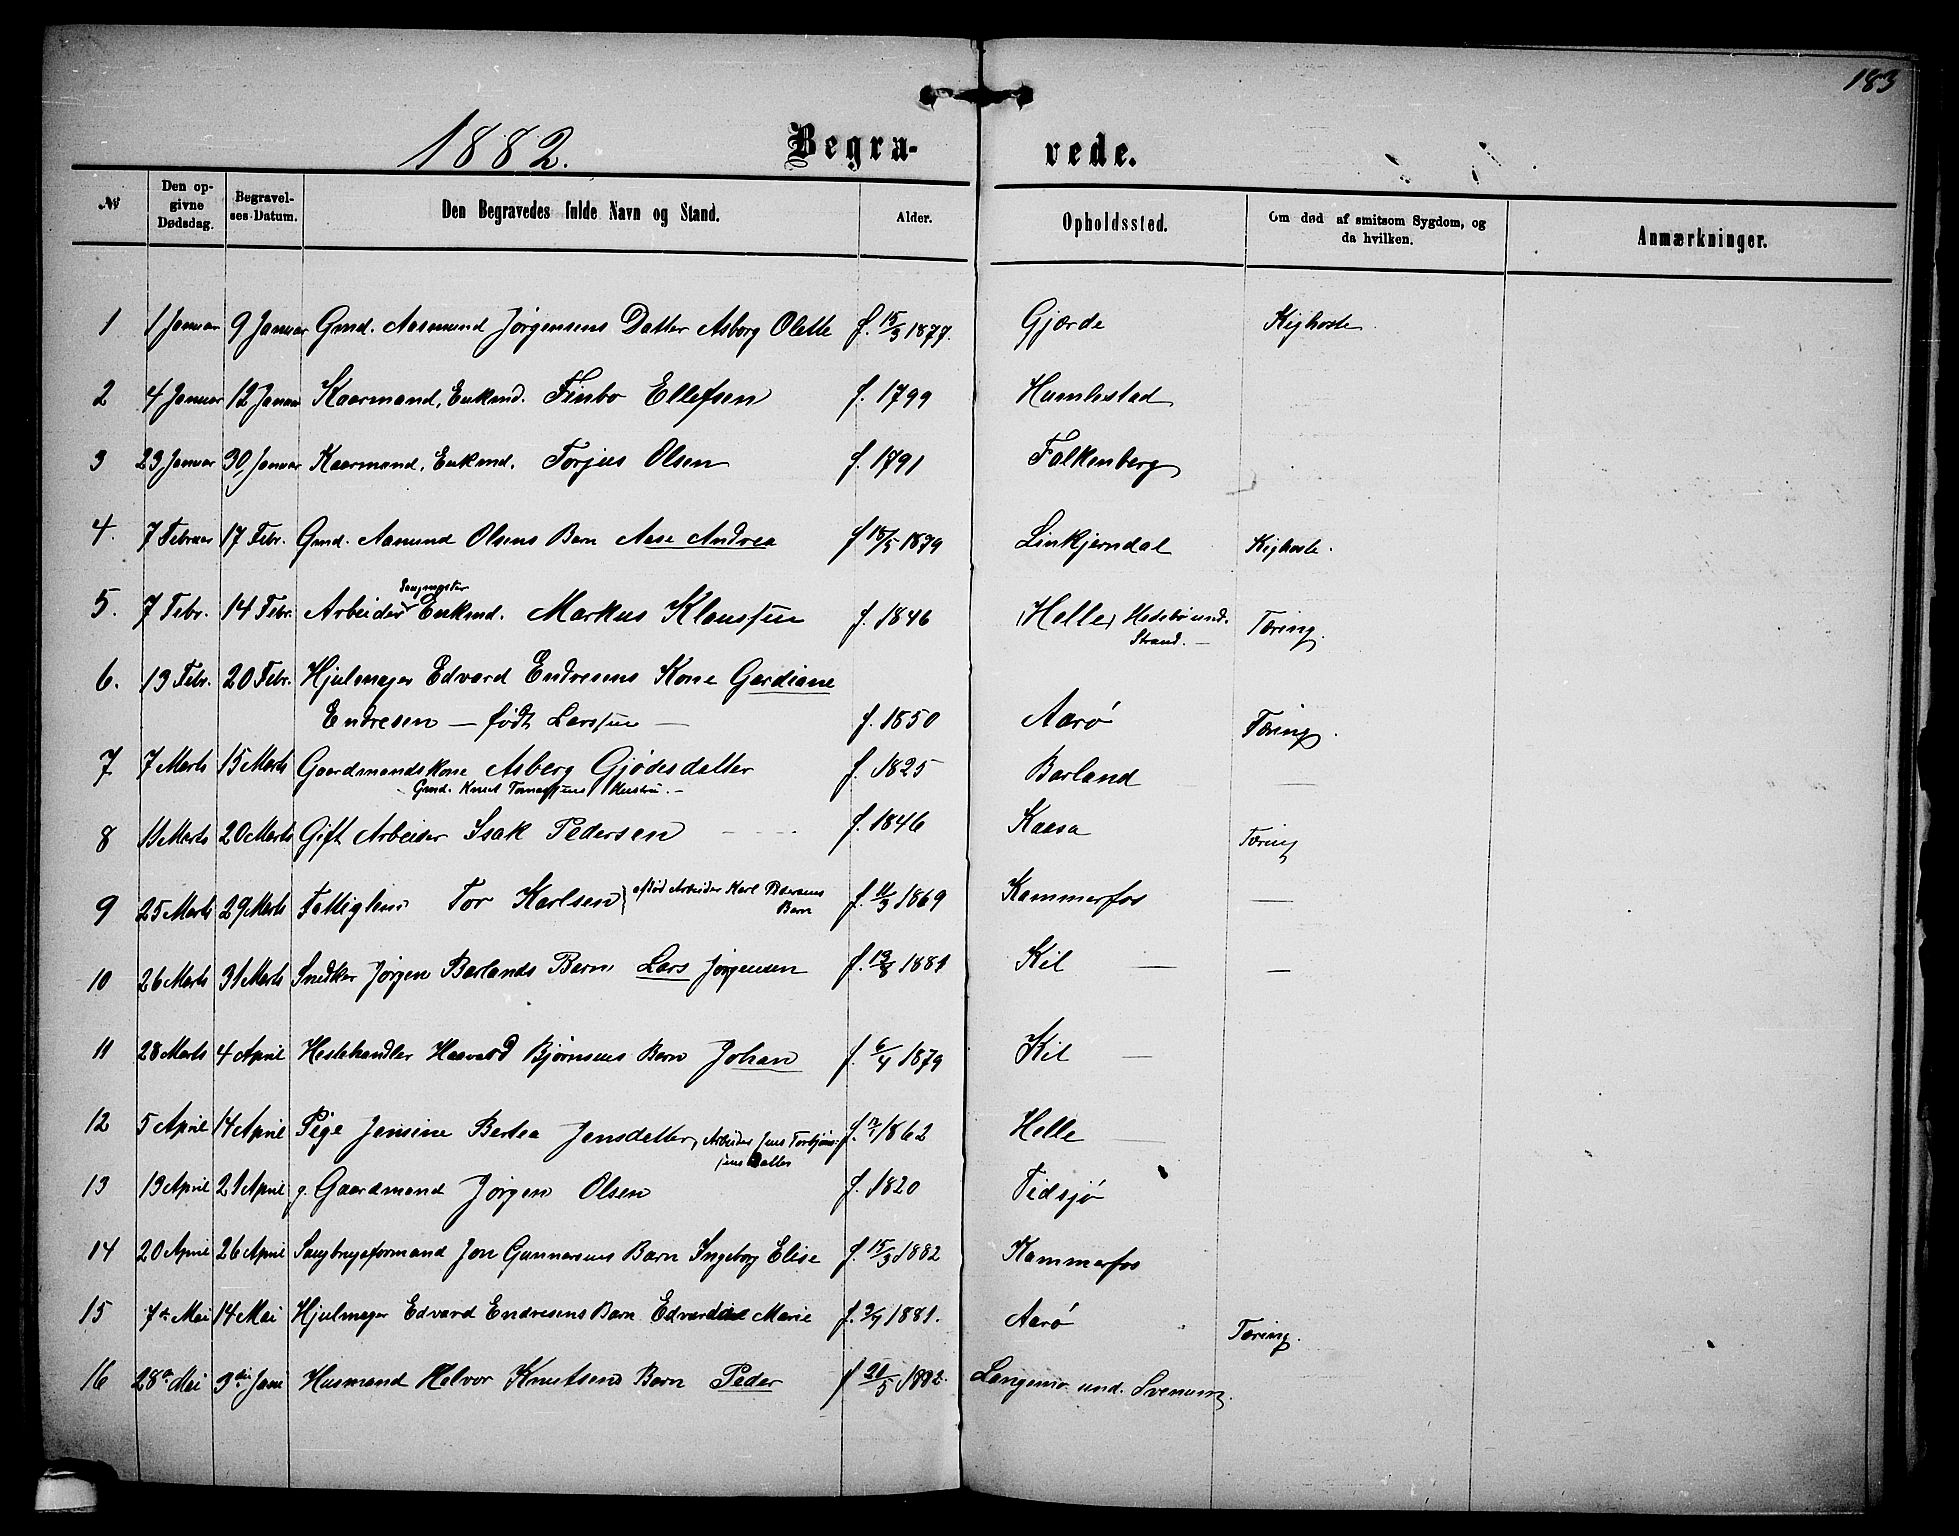 183
1882. Begravede.
№ Den opgivne Dødsdag. Begravelses-Datum. Den Begravedes fulde Navn og Stand. Alder. Opholdssted. Om død af smitsom Sygdom, og da hvilken. Anmærkninger.
1 1 Januar 9 Januar Gmd. Aasmund Jørgensens Datter Asborg Olette f. 15/3 1877. Gjærde Kighoste.
2 4 Januar 12 Januar Kaarmand, Enkmd. Finbo Ellefsen f. 1799 Humlestad
3 23 Januar 30 Januar Kaarmand, Enkmd. Torjus Olsen f. 1791 Falkenberg
4. 7 Februar 17 Febr. Gmd. Aamund Olsens Barn Aase Andrea f 18/5 1879 Linkjerndal Kighoste.
5. 7 Febr. 14 Febr. Arbeider Enkmd. Markus Klaussen f. 1846 (Helle) Hedebø und. Strand. — Tæring.
6. 13 Febr. 20 Febr. Hjulmager Edvard Endresens Kone Gardiane
Endresen — født Larssen — f. 1850 Aarø Tæring.
7 7 Marts 15 Marts Gaardmandskone Asberg Gjødesdatter f. 1825 Barland —
- Gmd. Knut Hustru. -
8 11 Marts 20 Marts Gift Arbeider Isak Pedersen f. 1846 Kaasa Tæring
9 25 Marts 29 Marts Fattiglem Tor Karlsen } afdød Arbeider Karl Pedersens Barn f. 11/3 1869 Kammerfos —
10 26 Marts 31 Marts Snedker Jørgen Barlands Barn Lars Jørgensen f. 13/8 1881 Kil — —
11 28 Marts 4 April Hestehandler Haavard Bjørnsens Barn Johan f. 6/4 1879 Kil —
12 5 April 14 April Pige Jensine Bertea Jensdatter, Arbeider Jens Torbjøns- f. 1862 Helle
sens Datter
13 13 April 21 April g. Gaardmand Jørgen Olsen f. 1820 Tidsjø
14 20 April 26 April Saugbrugsformand Jon Gunnarsens Barn Ingeborg Elise f. 15/3 1882 Kammerfos
15 7de Mai 14 Mai Hjulmager Edvard Endresens Barn Edvardine Marie f. 1881. Aarø Tæring.
16 28de Mai 3die Juni Husmand Halvor Knutsens Barn Peder f 20/5 1882. Langemo und. Svenum.